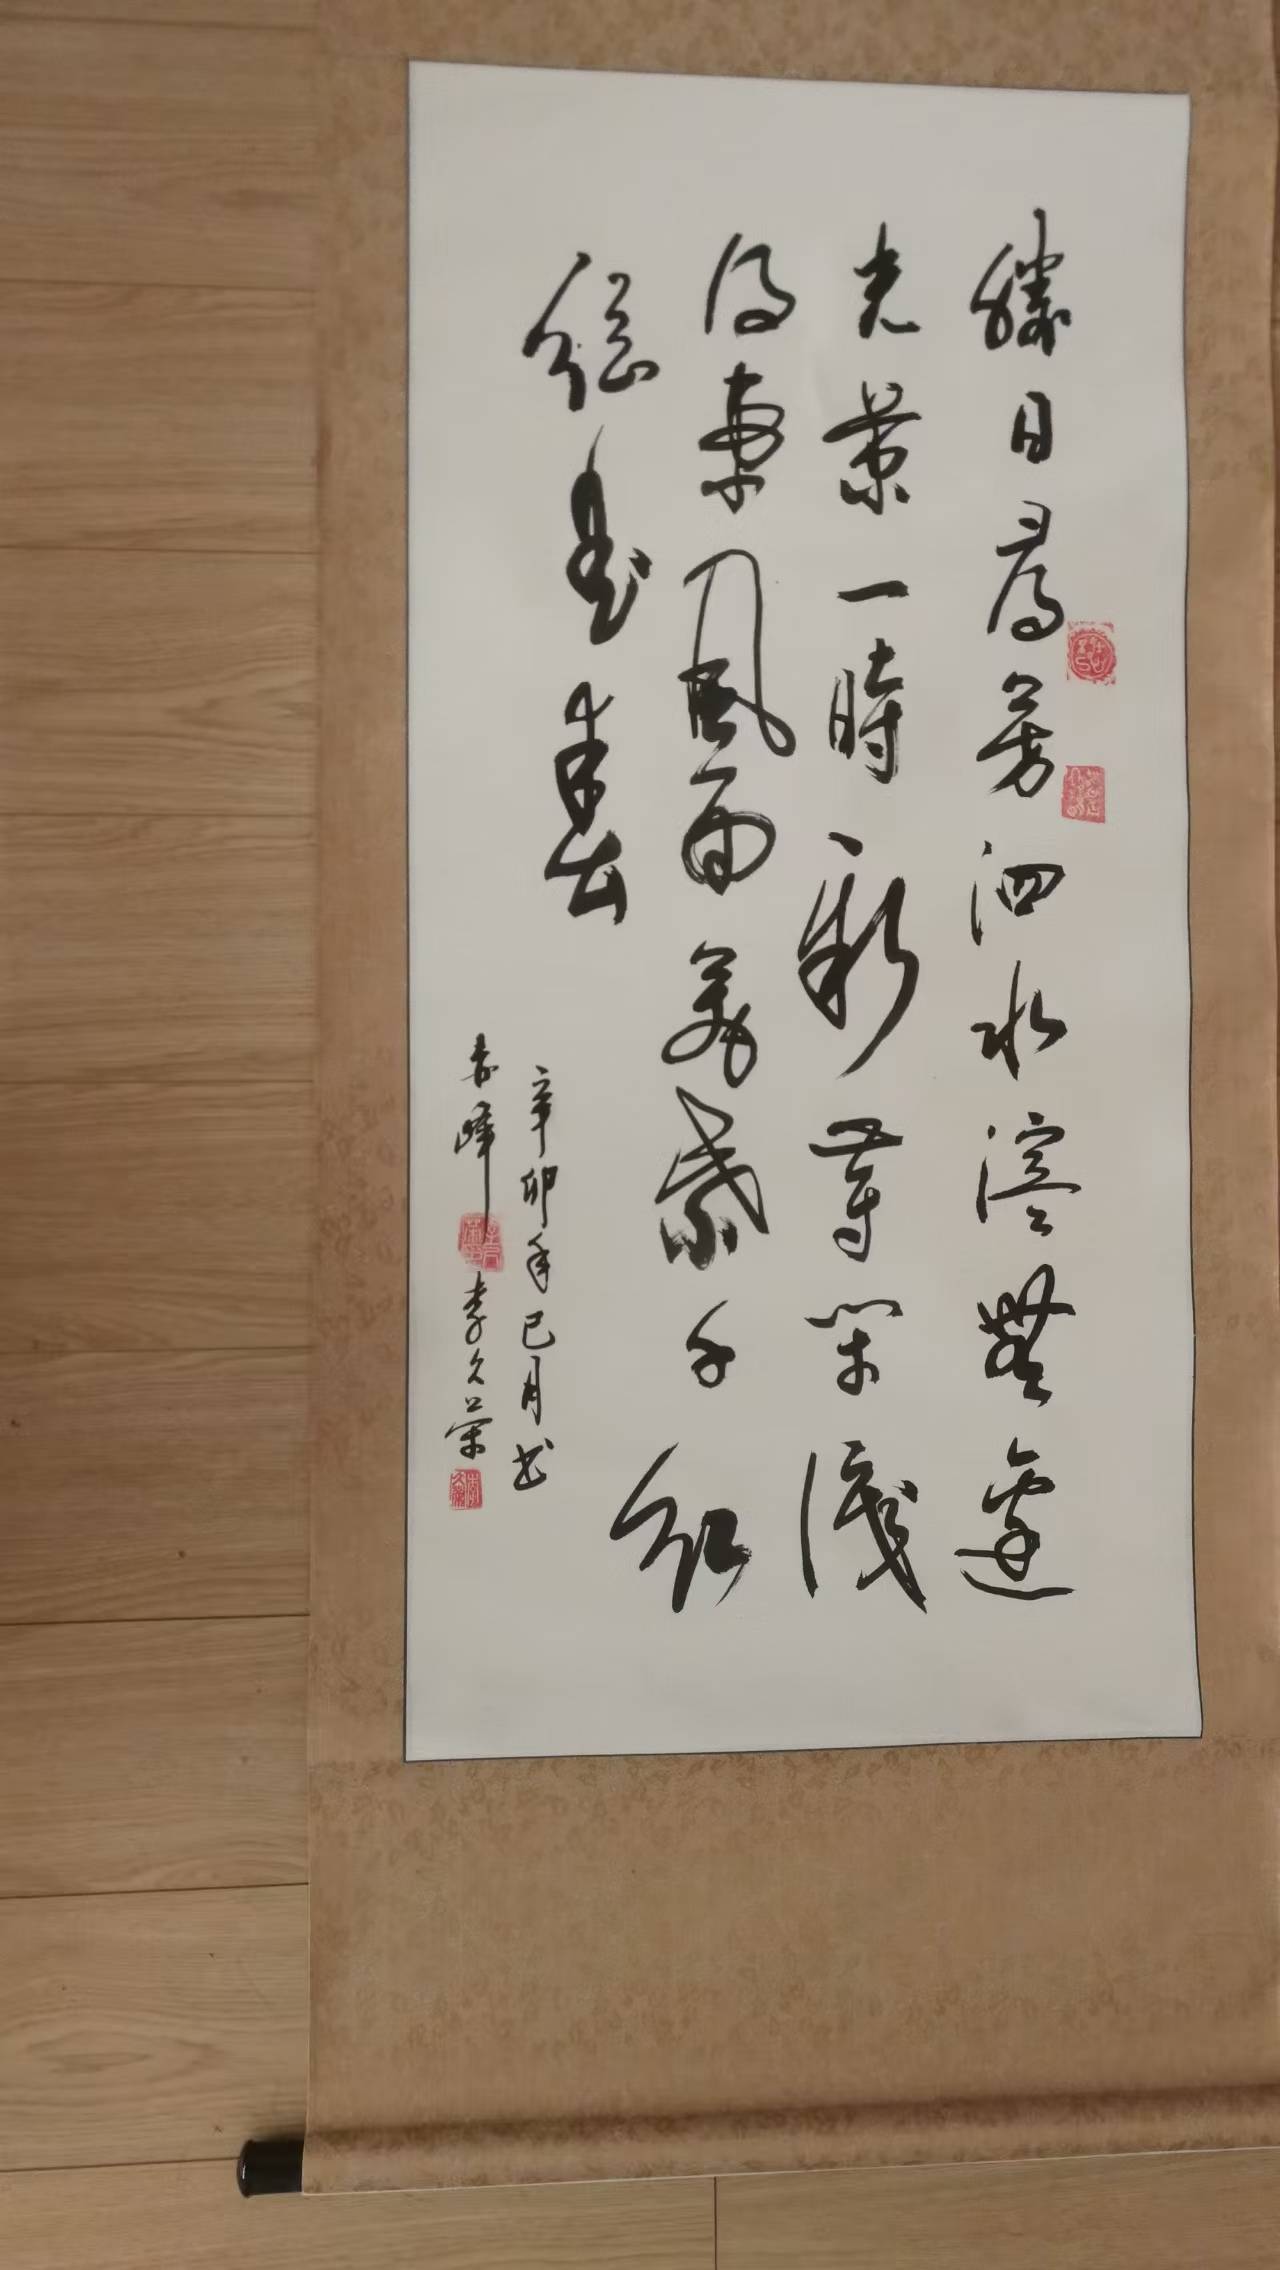 勝日尋芳泗水濱無邊
光景一時新等閑識
得東風面萬紫千紅
總是春
辛卯年巳月書
赤峰
李久榮